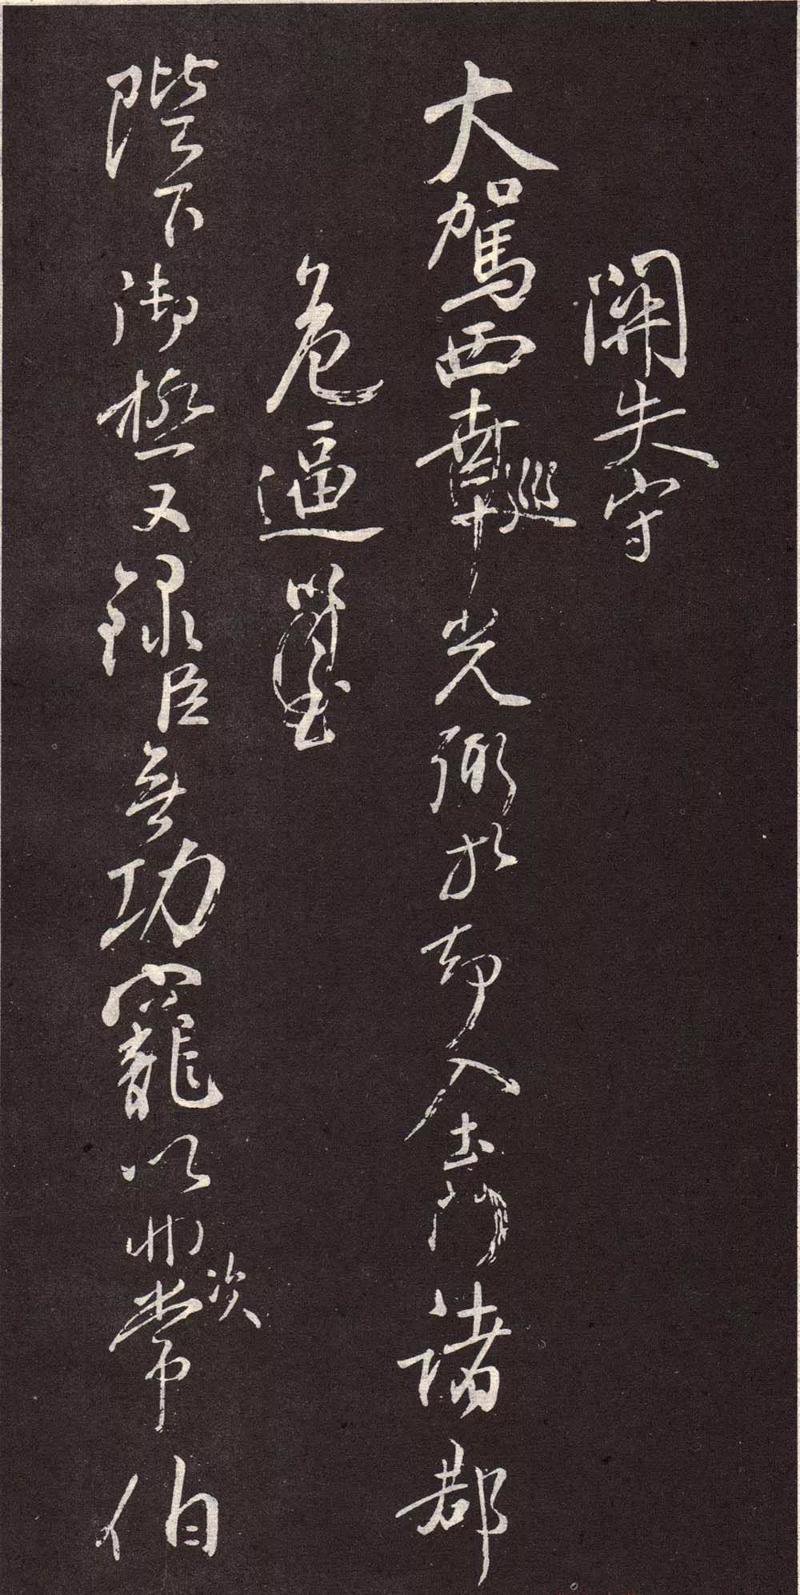 關失守
大駕西幸巡光弼於却入土門諸郡
危逼
陛下御極又録臣無功寵以非次常伯